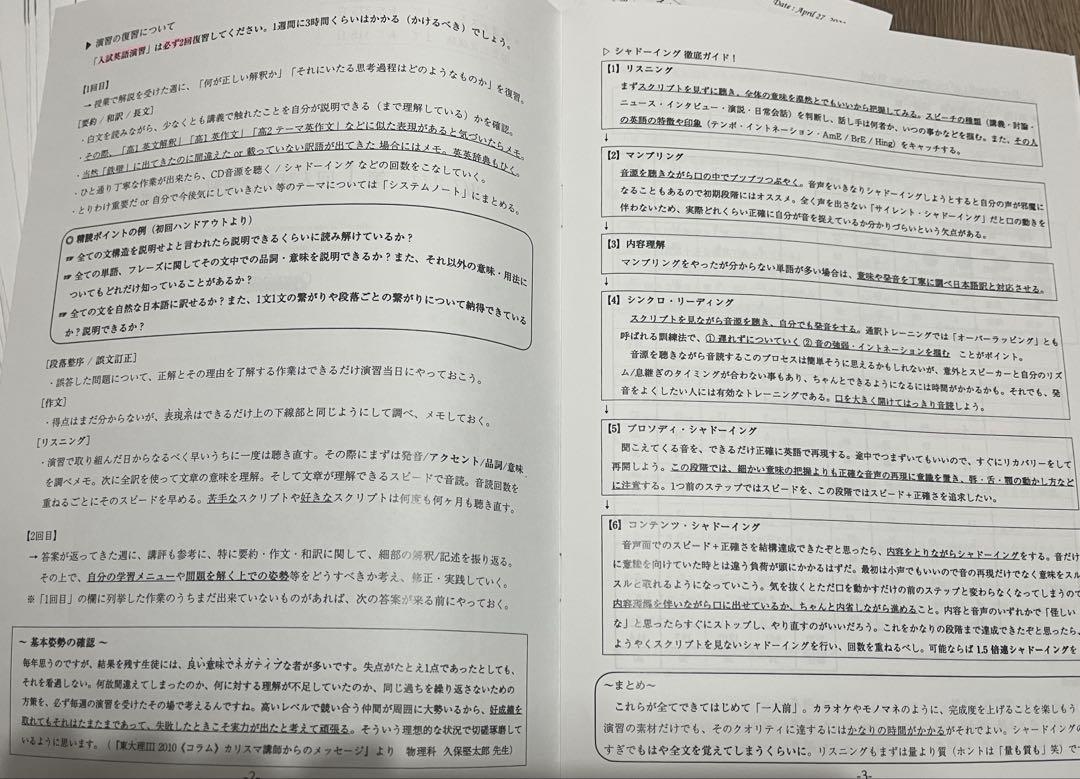 Date : April 27,
▶ 演習の復習について
「入試英語演習」は必ず2回復習してください。1週間に3時間くらいはかかる（かけるべき）でしょう。
【1回目】
→ 授業で解説を受けた週に、「何が正しい解釈か」「それにいたる思考過程はどのようなものか」を復習。
[要約 / 和訳 / 長文]
・白文を読みながら、少なくとも講義で触れたことを自分が説明できる（まで理解している）かを確認。
・その際、「高Ⅰ英文解釈」「高Ⅰ英作文」「高2 テーマ英作文」などに似た表現があると気づいたらメモ。
・当然「鉄壁」に出てきたのに間違えた or 載っていない訳語が出てきた 場合にはメモ。英英辞典もひく。
・ひと通り丁寧な作業が出来たら、CD音源を聴く / シャドーイング などの回数をこなしていく。
・とりわけ重要だ or 自分で今後気にしていきたい 等のテーマについては「システムノート」にまとめる。
◎ 精読ポイントの例（初回ハンドアウトより）
☞ 全ての文構造を説明せよと言われたら説明できるくらいに読み解けているか？
☞ 全ての単語、フレーズに関してその文中での品詞・意味を説明できるか？また、それ以外の意味・用法に
ついてもどれだけ知っていることがあるか？
☞ 全ての文を自然な日本語に訳せるか？また、1文1文の繋がりや段落ごとの繋がりについて納得できている
か？説明できるか？
[段落整序 / 誤文訂正]
・誤答した問題について、正解とその理由を了解する作業はできるだけ演習当日にやっておこう。
[作文]
・得点はまだ分からないが、表現系はできるだけ上の下線部と同じようにして調べ、メモしておく。
[リスニング]
・演習で取り組んだ日からなるべく早いうちに一度は聴き直す。その際にまずは発音/アクセント/品詞/意味
を調べメモ。次に全訳を使って文章の意味を理解。そして文章が理解できるスピードで音読。音読回数を
重ねるごとにそのスピードを早める。苦手なスクリプトや好きなスクリプトは何度も何ヶ月も聴き直す。
【2回目】
→ 答案が返ってきた週に、講評も参考に、特に要約・作文・和訳に関して、細部の解釈/記述を振り返る。
その上で、自分の学習メニューや問題を解く上での姿勢等をどうすべきか考え、修正・実践していく。
※「1回目」の欄に列挙した作業のうちまだ出来ていないものがあれば、次の答案が来る前にやっておく。
～ 基本姿勢の確認 ～
毎年思うのですが、結果を残す生徒には、良い意味でネガティブな者が多いです。失点がたとえ1点であったとしても、
それを看過しない。何故間違えてしまったのか、何に対する理解が不足していたのか、同じ過ちを繰り返さないための
方策を、必ず毎週の演習を受けたその場で考えるんですね。高いレベルで競い合う仲間が周囲に大勢いるから、好成績を
取れてもそれはたまたまであって、失敗したときこそ実力が出たと考えて頑張る。そういう理想的な状況で切磋琢磨して
いるように思います。（『東大理Ⅲ 2010《コラム》カリスマ講師からのメッセージ』より 物理科 久保堅太郎 先生）
-2-
▷ シャドーイング 徹底ガイド！
【1】リスニング
まずスクリプトを見ずに聴き、全体の意味を漠然とでもいいから把握してみる。スピーチの種類（講義・討論・
ニュース・インタビュー・演説・日常会話）を判断し、話し手は何者か、いつの事かなどを掴む。また、その人
の英語の特徴や印象（テンポ・イントネーション・AmE / BrE / Hing）をキャッチする。
↓
【2】マンブリング
音源を聴きながら口の中でブツブツつぶやく。音声をいきなりシャドーイングしようとすると自分の声が邪魔に
なることもあるので初期段階にはオススメ。全く声を出さない「サイレント・シャドーイング」だと口の動きを
伴わないため、実際どれくらい正確に自分が音を捉えているか分かりづらいという欠点がある。
↓
【3】内容理解
マンブリングをやったが分からない単語が多い場合は、意味や発音を丁寧に調べ日本語訳と対応させる。
↓
【4】シンクロ・リーディング
スクリプトを見ながら音源を聴き、自分でも発音をする。通訳トレーニングでは「オーバーラッピング」とも
呼ばれる訓練法で、① 遅れずについていく ② 音の強弱・イントネーションを掴む ことがポイント。
音源を聴きながら音読するこのプロセスは簡単そうに思えるかもしれないが、意外とスピーカーと自分のリズ
ム/息継ぎのタイミングが合わない事もあり、ちゃんとできるようになるには時間がかかるかも。それでも、発
音をよくしたい人には有効なトレーニングである。口を大きく開けてはっきり音読しよう。
↓
【5】プロソディ・シャドーイング
聞こえてくる音を、できるだけ正確に英語で再現する。途中でつまずいてもいいので、すぐにリカバリーをして
再開しよう。この段階では、細かい意味の把握よりも正確な音声の再現に意識を置き、唇・舌・顎の動かし方など
に注意する。1つ前のステップではスピードを、この段階ではスピード+正確さを追求したい。
↓
【6】コンテンツ・シャドーイング
音声面でのスピード+正確さを結構達成できたぞと思ったら、内容をとりながらシャドーイングをする。音だけ
に意識を向けていた時とは違う負荷が頭にかかるはずだ。最初は小声でもいいので音の再現だけでなく意味をスル
スルと取れるようになっていこう。気を抜くとただ口を動かすだけの前のステップと変わらなくなってしまうので
内容理解を伴いながら口に出せているか、ちゃんと内省しながら進めること。内容と音声のいずれかで「怪しい
な」と思ったらすぐにストップし、やり直すのがいいだろう。これをかなりの段階まで達成できたぞと思ったら、
ようやくスクリプトを見ないシャドーイングを行い、回数を重ねるべし。可能ならば 1.5 倍速シャドーイングを
～まとめ～
これらが全てできてはじめて「一人前」。カラオケやモノマネのように、完成度を上げることを楽しもう
演習の素材だけでも、そのクオリティに達するにはかなりの時間がかかるがそれでよい。シャドーイングの
すぎでもはや全文を覚えてしまうくらいに。リスニングもまずは量より質（ホントは「量も質も」笑）で
-3-